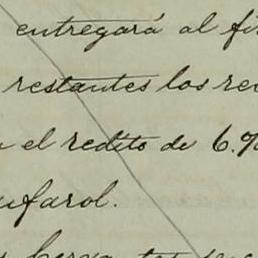 entregará al fi
restantes los re
el redito de 6.%
ufarol.